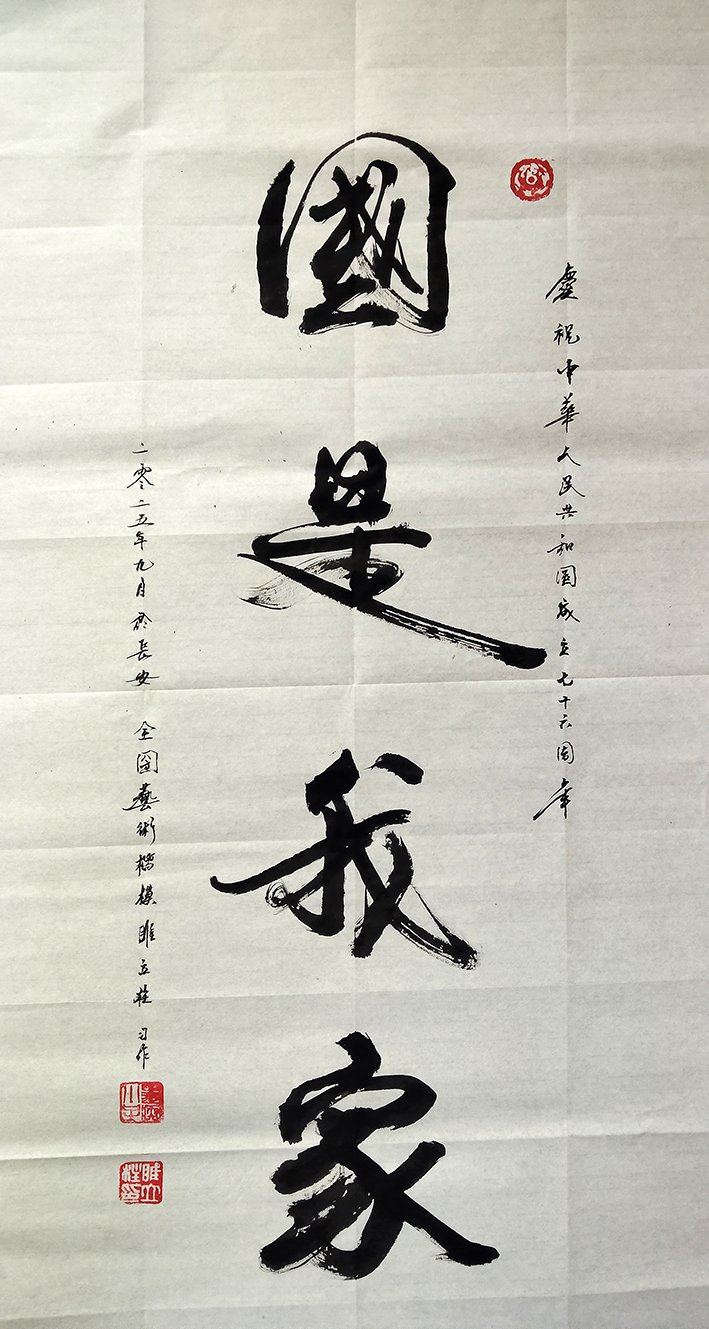 慶祝中華人民共和國成立七十六周年
國是我家
二零二五年九月於長安 全國藝術楷模睢立桂 习作
睢立桂印